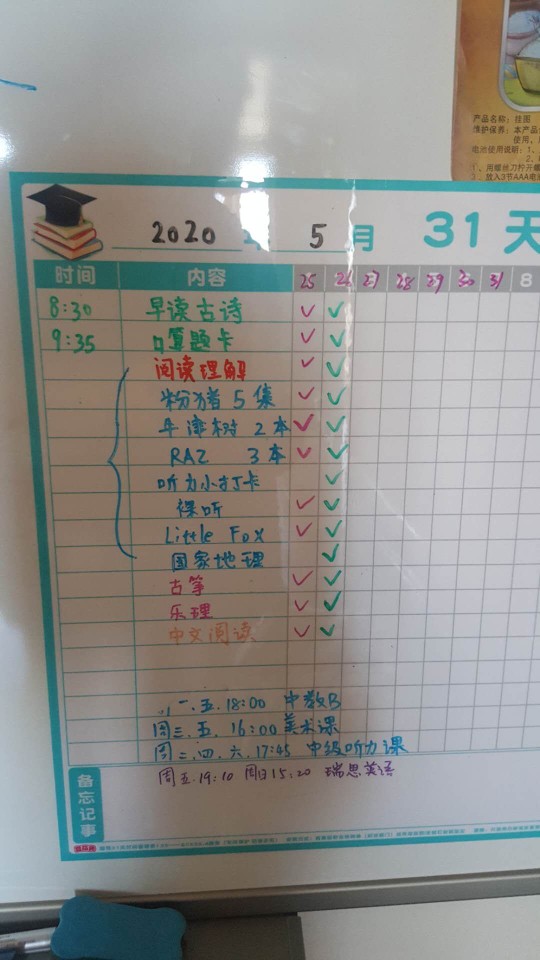 产品名称：挂图
维护保养：本产品
使用，
电池使用说明：1、
2、
1、用螺丝刀拧开
3、放入3节AAA电
2020 年 5 月 31 天
时间 内容 25 26 27 28 29 30 31 8
8:30 早读古诗 ✓ ✓
9:35 口算题卡 ✓ ✓
阅读理解 ✓ ✓
粉猪 5 集 ✓ ✓
牛津树 2本 ✓ ✓
RAZ 3本 ✓ ✓
听力小打卡 ✓
裸听 ✓ ✓
Little Fox ✓ ✓
国家地理 ✓
古筝 ✓ ✓
乐理 ✓ ✓
中文阅读 ✓ ✓
一.五.18:00 中数B
周三.五.16:00美术课
周二.四.六.17:45 中级听力课
备忘记事
周五.19:10 周日15:20 瑞思英语